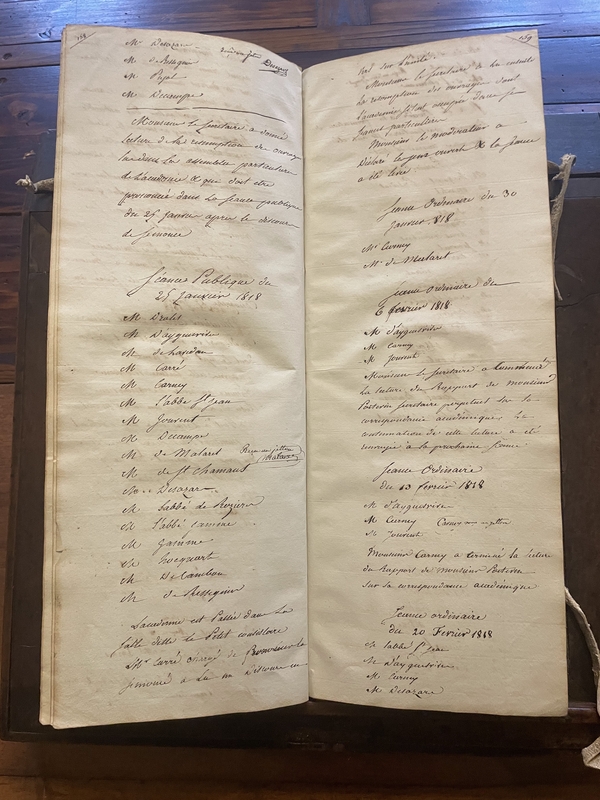 168
Mr Desazar
Mr de Resseguier
Mr Pujol
Mr Decampe
Monsieur le secretaire a donné
lecture de la resomption des ouvrages
lus dans les assemblées particulieres
de Lacademie & que doit etre
prononcé dans la seance publique
du 25 janvier apres le discours
de semonce
Séance Publique du
25 Janvier 1818
M Dralet
M Dayguesvives
M
M Carré
M Carney
M L'abbé St jean
M Jouvent
M Decampe
M de Malaret Reçu un jetton Malaret
M de St chamaut
M Desazar
M Labbé de Rozieres
M L'abbé
M
M hocquart
M De Cambon
M de Resseguier
Lacademie est Passée dans la
salle ditte le Petit consistoire
Mr Carré chargé de Prononcer la
semonce a lu un Discours en
169
Monsieur le secretaire a lu ensuite
La resomption des ouvrages dont
Lacademie s'etoit occupée dans ses
seances particulieres
Monsieur le moderateur a
Déclaré le jour ouvert & la seance
a été levée
Seance Ordinaire du 30
Janvier 1818
Mr Carney
Mr de Malaret
Seance ordinaire du
6 fevrier 1818
M D'ayguesvives
M Carney
M Jouvent
Monsieur le secretaire a commencé
la lecture du Rapport de monsieur
Poitevin secretaire perpetuel sur la
correspondance académique la
continuation de cette lecture a été
renvoyée a la prochaine seance
Seance Ordinaire
du 13 fevrier 1818
M D'ayguesvives
M Carney Carney un jetton
M Jouvent
Monsieur Carney a terminé la lecture
du Rapport de monsieur Poitevin
sur la correspondance académique
Seance ordinaire
du 20 Fevrier 1818
M Labbé St jean
M D'ayguesvives
M Carney
M Desazar